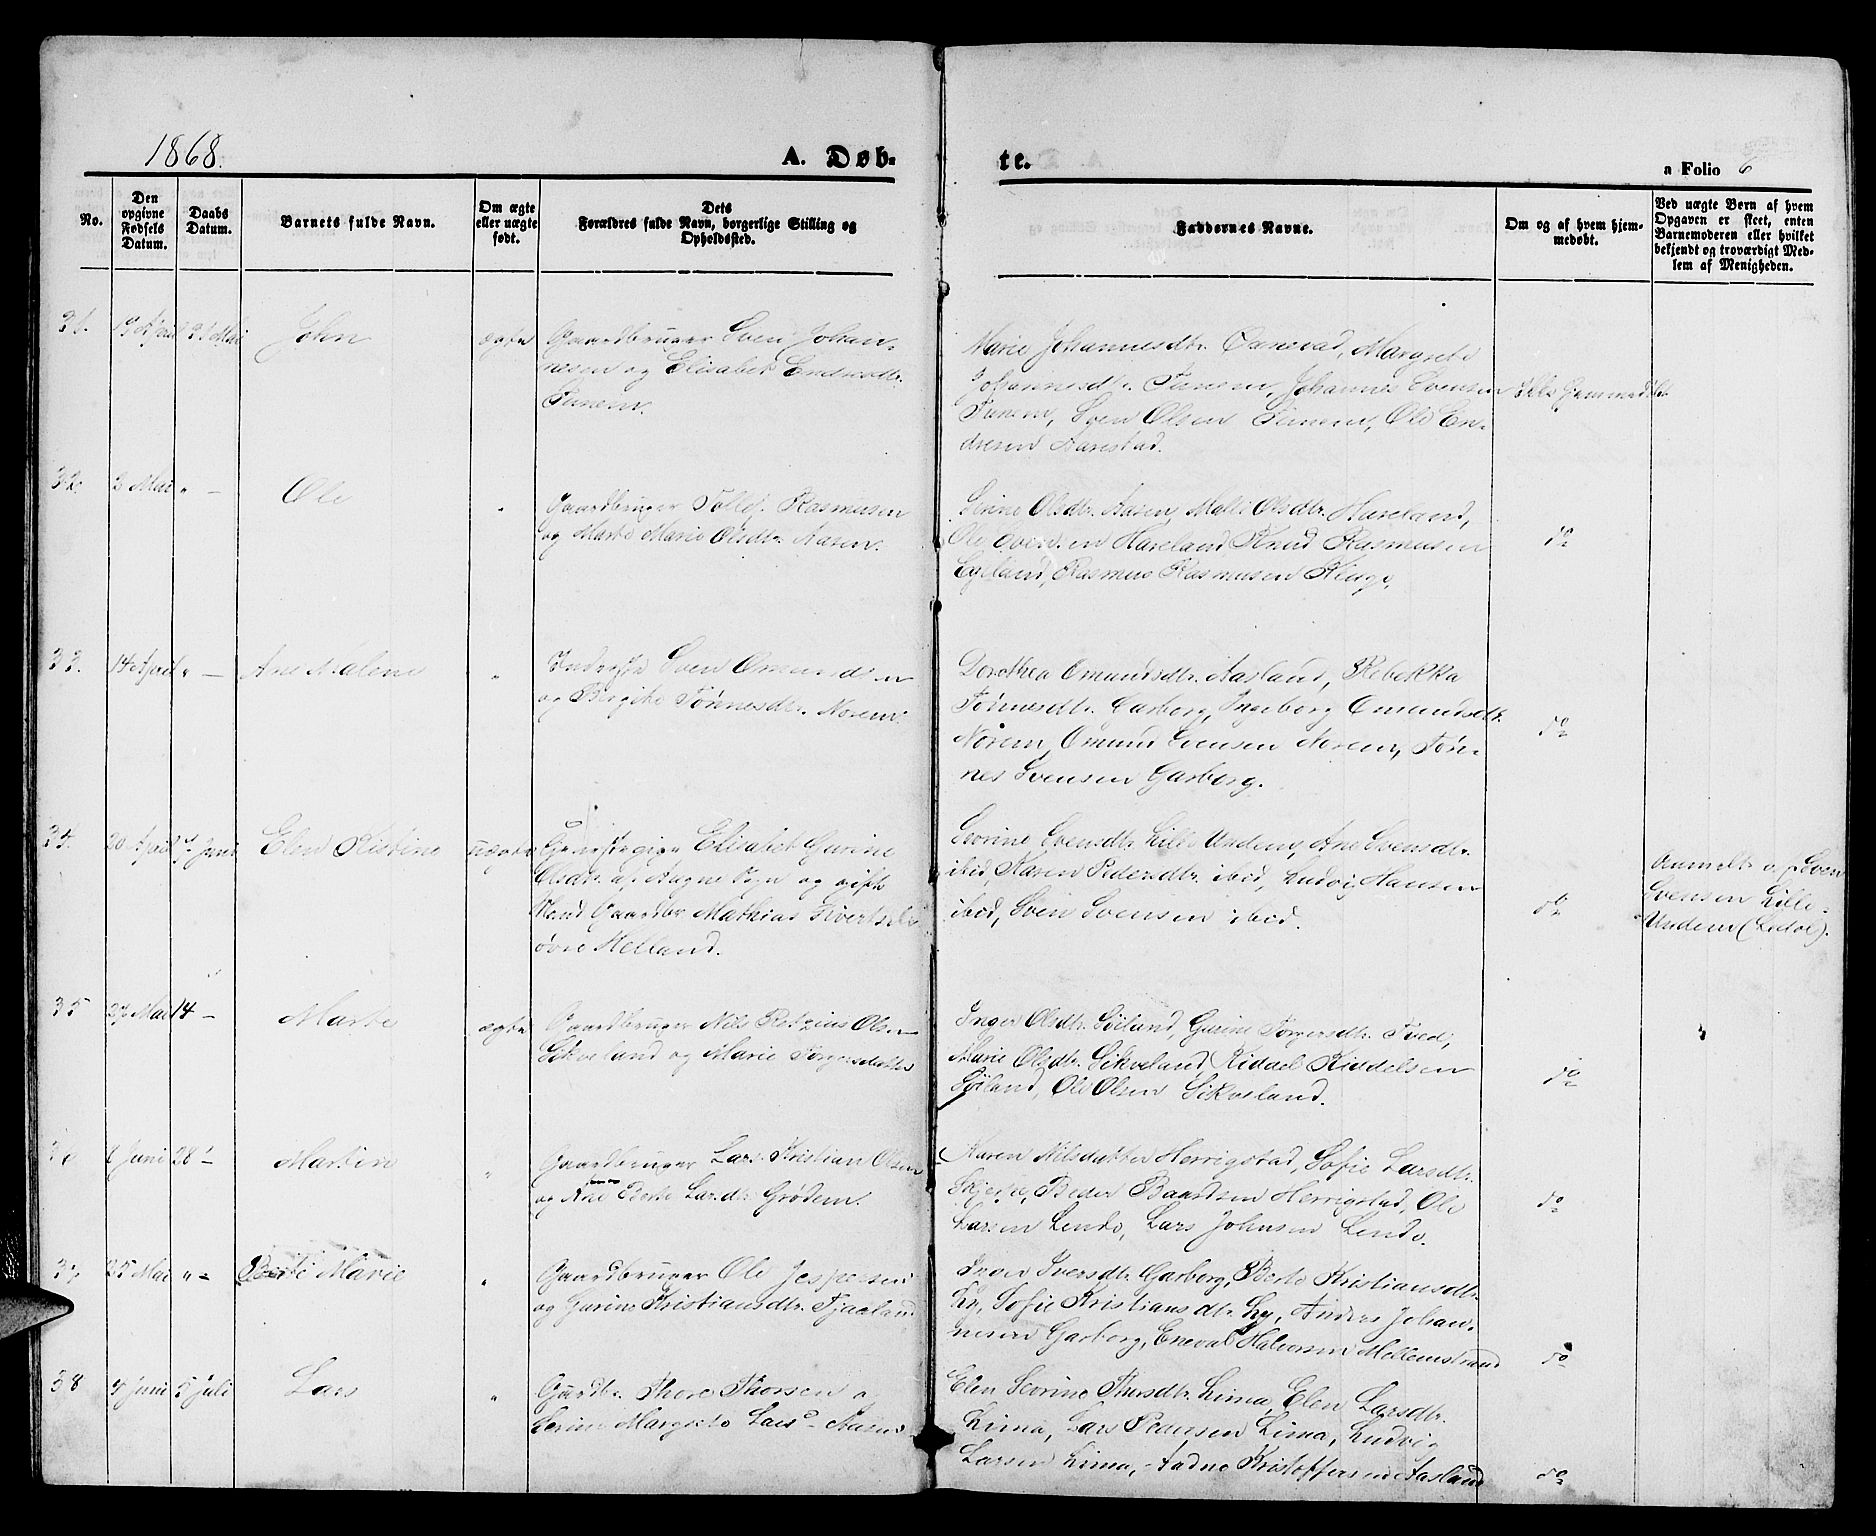 1868.
A. Døb-
te.
a Folio 6
No.
Den opgivne Fødsels Datum.
Daabs Datum.
Barnets fulde Navn.
Om ægte eller uægte født.
Dets Forældres fulde Navn, borgerlige Stilling og Opholdssted.
Faddernes Navne.
Om og af hvem hjemmedøbt.
Ved uægte Børn af hvem Opgaven er skeet, enten Barnemoderen eller hvilket bekjendt og troværdigt Medlem af Menigheden.
31. 19 April 31 Mai John ægte Gaardbruger Sven Johan-
nesen og Elisabet Endresdtr.
Tunem.
Marie Johannesdtr. Margrete
Johannesdtr. Tunem, Johannes Svensen
Tunem, Sven Olsen Tunem, Ole En-
dresen Aarestad.
Ikke hjemmedøbt
32. 2 Mai " — Ole " Gaardbruger Tollef Rasmusen
og Marte Marie Olsdtr. Aasen.
Serine Olsdtr. Aasen, Malli Olsdtr. Haveland,
Ole Svendsen Haveland, Knud Rasmusen
Egeland, Rasmus Rasmusen
do
33. 14 April " — Ane Malene " Inderste Sven Omundsen
og Birgite Tønnesdtr. Norem.
Dorothea Omundsdtr. Aasland, Rebekka
Tønnesdtr. Garborg, Ingeborg Omundsdtr.
Norem, Omund Svensen Norem, Tøn-
nes Svensen Garborg.
do
34. 20 April 7 Juni Elen Kistine uægte Elisabet Gurine
Olsdtr. af Sogn og gift
Mand Gaardbr. Mathias Sivertsen
øvre Helland.
Severine Svensdtr. Lille Undem, Ane Svensdtr.
ibid, Karen Pedersdtr. ibid, Ludvig Hansen
ibid, Sven Svensen ibid.
do
Anmeldt Sven
Svensen Lille-
Undem
35 27 Mai 14 — Marte ægte Gaardbruger Nils Retzius Olsen
Sikveland og Marie Torgersdatter
Inger Olsdtr. Søiland, Gurine Torgersdtr. Tved,
Marie Olsdtr. Sikveland, Riddel Riddelsen
Søiland, Ole Olsen Sikveland.
do
36 8 Juni 28 — Martin " Gaardbruger Lars Kristian Olsen
og Ane Berte Larsdtr. Grødem.
Karen Nilsdatter Herrigstad, Sofie Larsdtr.
Peder Baardsen Herrigstad, Ole
Larsen Lende, Lars Johnsen Lende.
do
37 25 Mai " — Berte Marie " Gaardbruger Ole Jespersen
og Gurine Kristiansdtr. Tjaaland
Inger Iversdtr. Garborg, Berte Kristiansdtr.
Ly, Sofie Kristiansdtr. Ly, Anders Johan-
nesen Garborg, Enevald Halvorsen Mellemstrand
do
38 4 Juni 5 Juli Lars " Gaardbr. Thore Thorsen og
Serine Margrete Larsd
Elen Severine Thorsdtr. Lima, Elen Larsdtr.
Lima, Lars Pedersen Lima, Ludvig
Larsen Lima, Aadne Kristoffersen Aasland
do